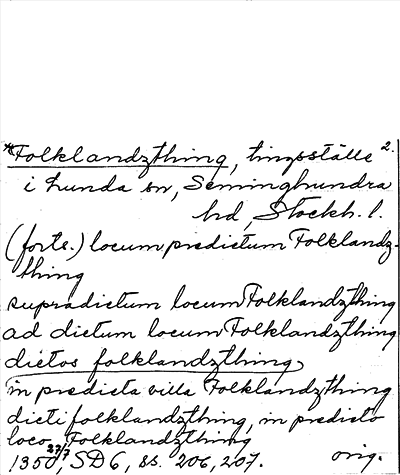 *Folklandzthing, tingsställe 2.
i Lunda sn, Seminghundra
hd, Stockh. l.
(forts.) locum predictum Folklandz-
thing
supradictum locum Folklandzthing
ad dictum locum Folklandzthing
dictos folklandzthing,
in predicta villa Folklandzthing
dicti folklandzthing, in predicto
loco, Folklandzthing
1350 27/7, SD 6, ss. 206, 207. orig.